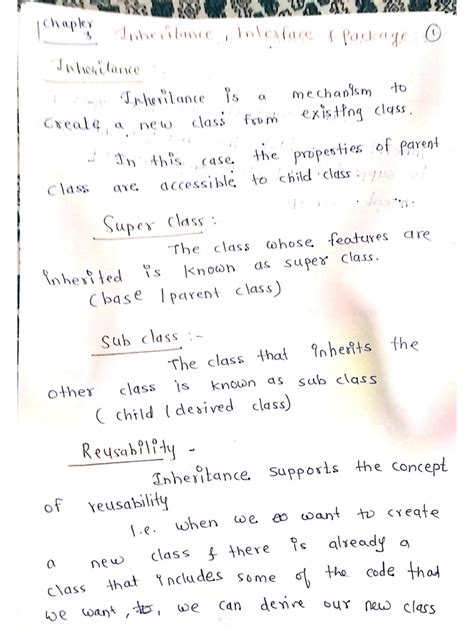 Chapter
3 Inheritance, Interface & Package ①
Inheritance :
Inheritance is a mechanism to
create a new class from existing class.
- In this case the properties of parent
class are accessible to child class.
Super Class :
The class whose features are
inherited is known as super class.
(base / parent class)
Sub class :-
The class that inherits the
other class is known as sub class
( child / derived class)
Reusability -
Inheritance supports the concept
of reusability
i.e. when we want to create
a new class & there is already a
class that includes some of the code that
we want, we can derive our new class